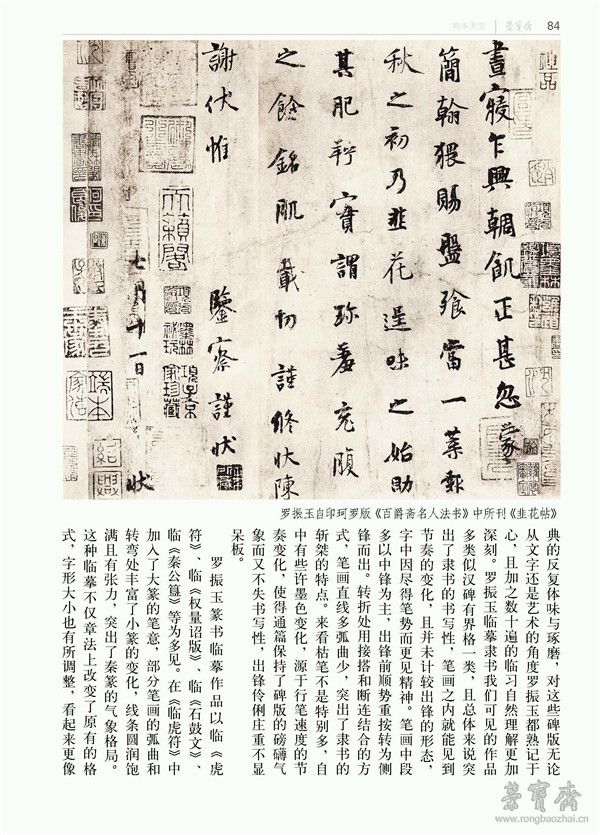 物华天宝 荣宝斋 84
晝寢乍興輖飢正甚忽蒙
簡翰猥賜盤飧當一葉報
秋之初乃韭花逞味之始助
其肥羜實謂珍羞充腹
之餘銘肌載切謹修狀陳
謝伏惟 鑒察謹狀
七月十一日 狀
罗振玉自印珂罗版《百爵斋名人法书》中所刊《韭花帖》
典的反复体味与琢磨，对这些碑版无论
从文字还是艺术的角度罗振玉都熟记于
心，且加之数十遍的临习自然理解更加
深刻。罗振玉临摹隶书我们可见的作品
多类似汉碑有界格一类，且总体来说突
出了隶书的书写性，笔画之内就能见到
节奏的变化，且并未计较出锋的形态，
字中因尽得笔势而更见精神。笔画中段
多以中锋为主，出锋前顺势重按转为侧
锋而出。转折处用接搭和断连结合的方
式，笔画直线多弧曲少，突出了隶书的
斩桀的特点。来看枯笔不是特别多，自
中有些许墨色变化，源于行笔速度的节
奏变化，使得通篇保持了碑版的磅礴气
象而又不失书写性，出锋伶俐庄重不显
呆板。
罗振玉篆书临摹作品以临《虎
符》、临《权量诏版》、临《石鼓文》、
临《秦公簋》等为多见。在《临虎符》中
加入了大篆的笔意，部分笔画的弧曲和
转弯处丰富了小篆的变化，线条圆润饱
满且有张力，突出了秦篆的气象格局。
这种临摹不仅章法上改变了原有的格
式，字形大小也有所调整，看起来更像
荣宝斋
www.rongbaozhai.cn